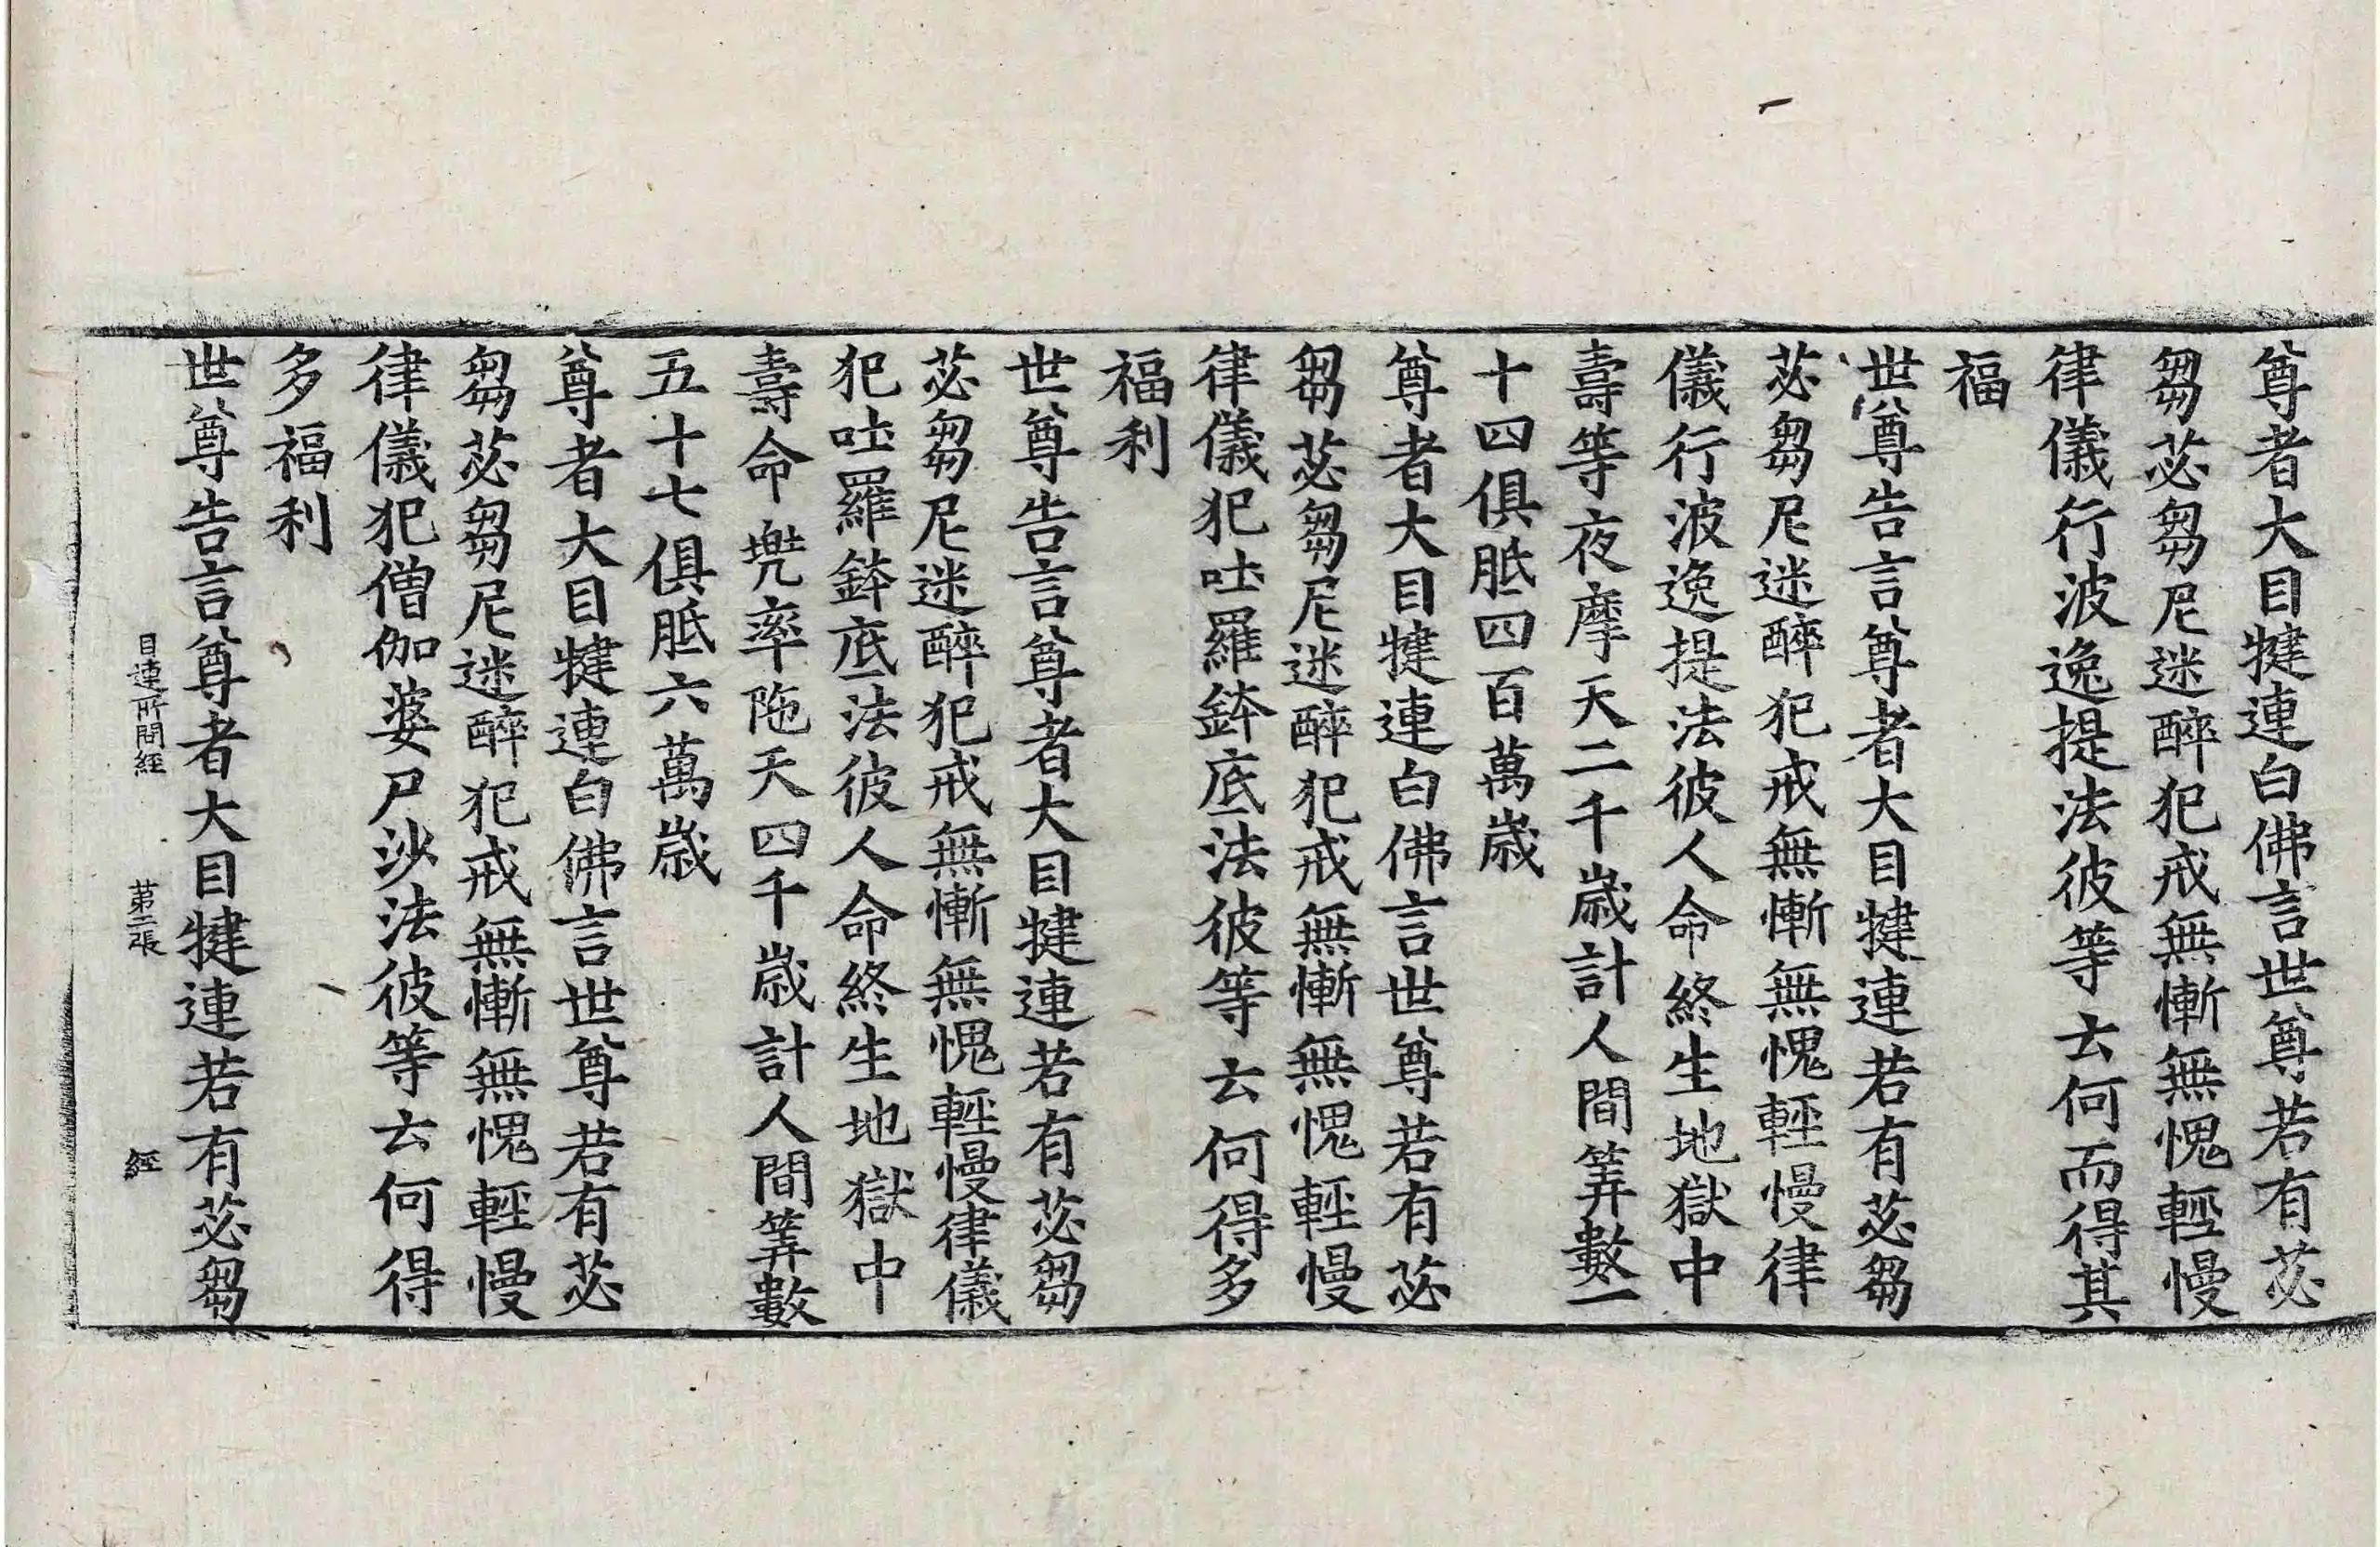 尊者大目揵連白佛言世尊若有苾
芻苾芻尼迷醉犯戒無慚無愧輕慢
律儀行波逸提法彼等云何而得其
福
世尊告言尊者大目揵連若有苾芻
苾芻尼迷醉犯戒無慚無愧輕慢律
儀行波逸提法彼人命終生地獄中
壽等夜摩天二千歲計人間筭數一
十四俱胝四百萬歲
尊者大目揵連白佛言世尊若有苾
芻苾芻尼迷醉犯戒無慚無愧輕慢
律儀犯吐羅鉢底法彼等云何得多
福利
世尊告言尊者大目揵連若有苾芻
苾芻尼迷醉犯戒無慚無愧輕慢律儀
犯吐羅鉢底法彼人命終生地獄中
壽命兠率陁天四千歲計人間筭數
五十七俱胝六萬歲
尊者大目揵連白佛言世尊若有苾
芻苾芻尼迷醉犯戒無慚無愧輕慢
律儀犯僧伽婆尸沙法彼等云何得
多福利
目連所問經 苐二張 經
世尊告言尊者大目揵連若有苾芻